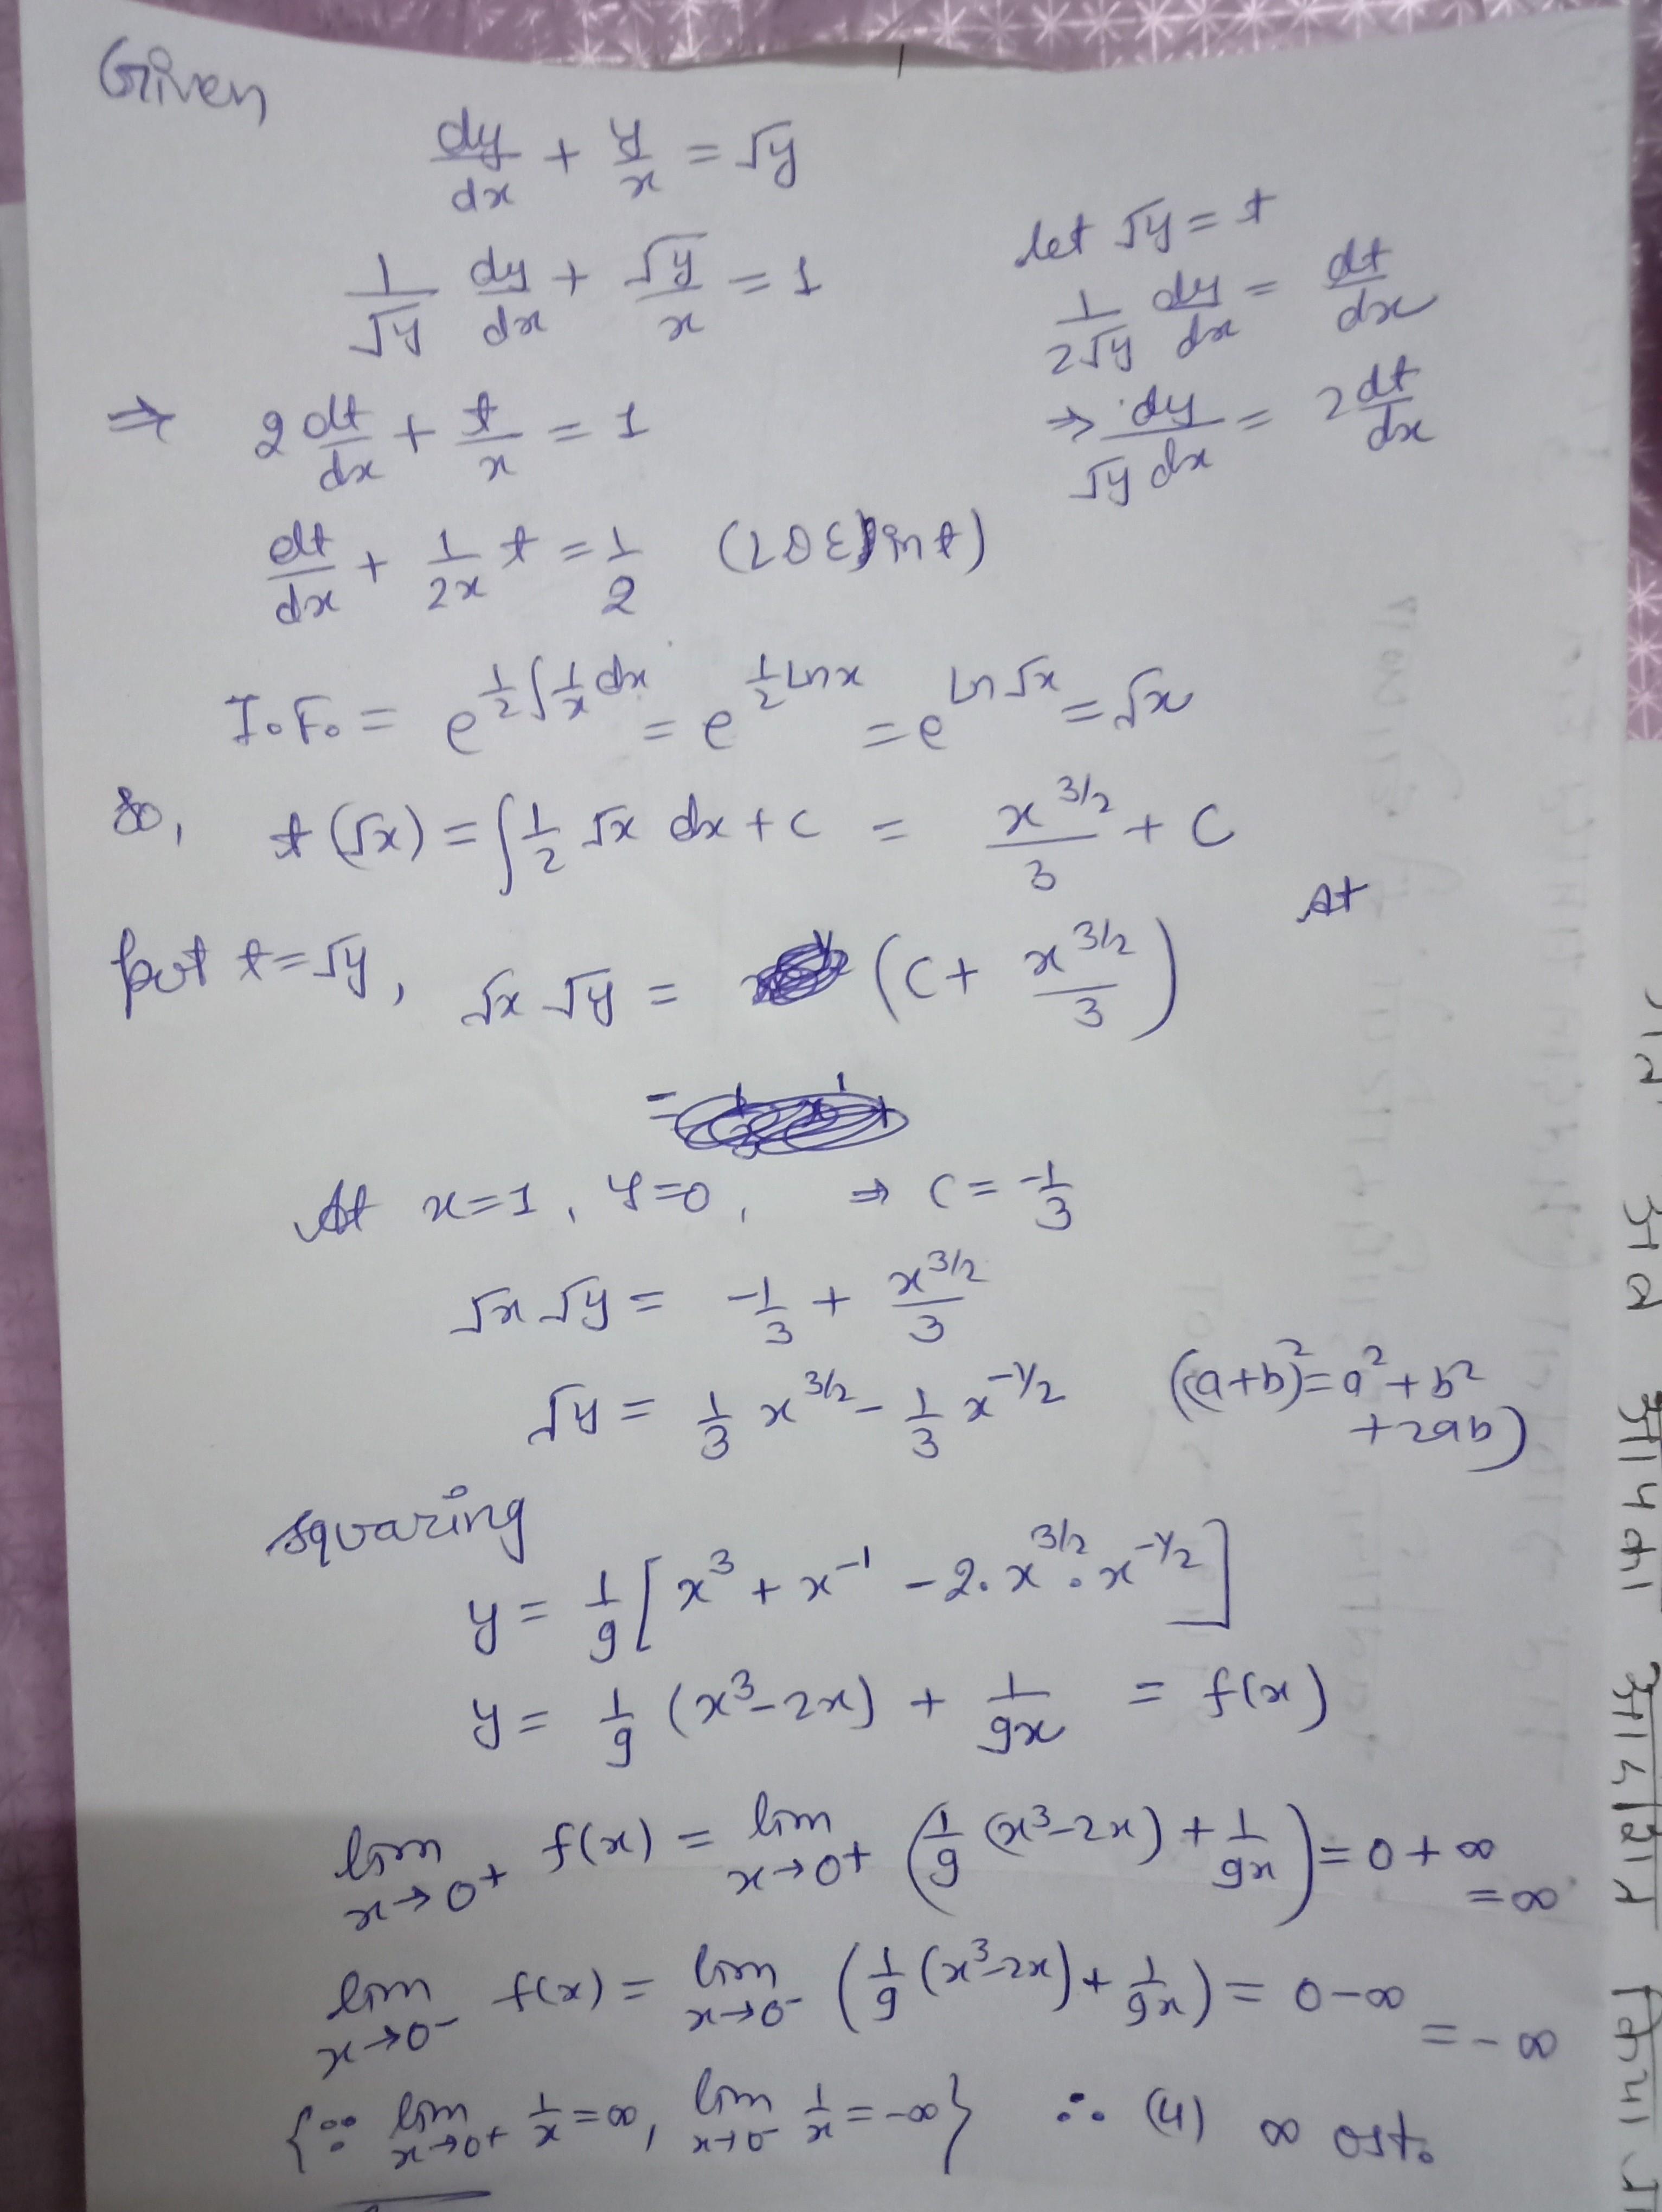 Given
dy/dx + y/x = √y
let √y = t
1/√y dy/dx + √y/x = 1
1/2√y dy/dx = dt/dx
⇒ 2 dt/dx + t/x = 1
⇒ dy/√y dx = 2 dt/dx
dt/dx + 1/2x t = 1/2 (LDE in t)
I.F. = e^(1/2 ∫ 1/x dx) = e^(1/2 Ln x) = e^(Ln √x) = √x
So, t(√x) = ∫ 1/2 √x dx + C = x^(3/2)/3 + C
At
put t = √y, √x √y = (C + x^(3/2)/3)
=
At x=1, y=0, ⇒ C = -1/3
√x √y = -1/3 + x^(3/2)/3
√y = 1/3 x^(3/2) - 1/3 x^(-1/2)
((a+b)² = a² + b²
+2ab)
squaring
y = 1/9 [x³ + x^(-1) - 2. x^(3/2) . x^(-1/2)]
y = 1/9 (x³-2x) + 1/9x = f(x)
lim x→0+ f(x) = lim x→0+ (1/9 (x³-2x) + 1/9x) = 0 + ∞
= ∞
lim x→0- f(x) = lim x→0- (1/9 (x³-2x) + 1/9x) = 0 - ∞
= - ∞
{∵ lim x→0+ 1/x = ∞, lim x→0- 1/x = -∞} ∴ (4)
अब आपका